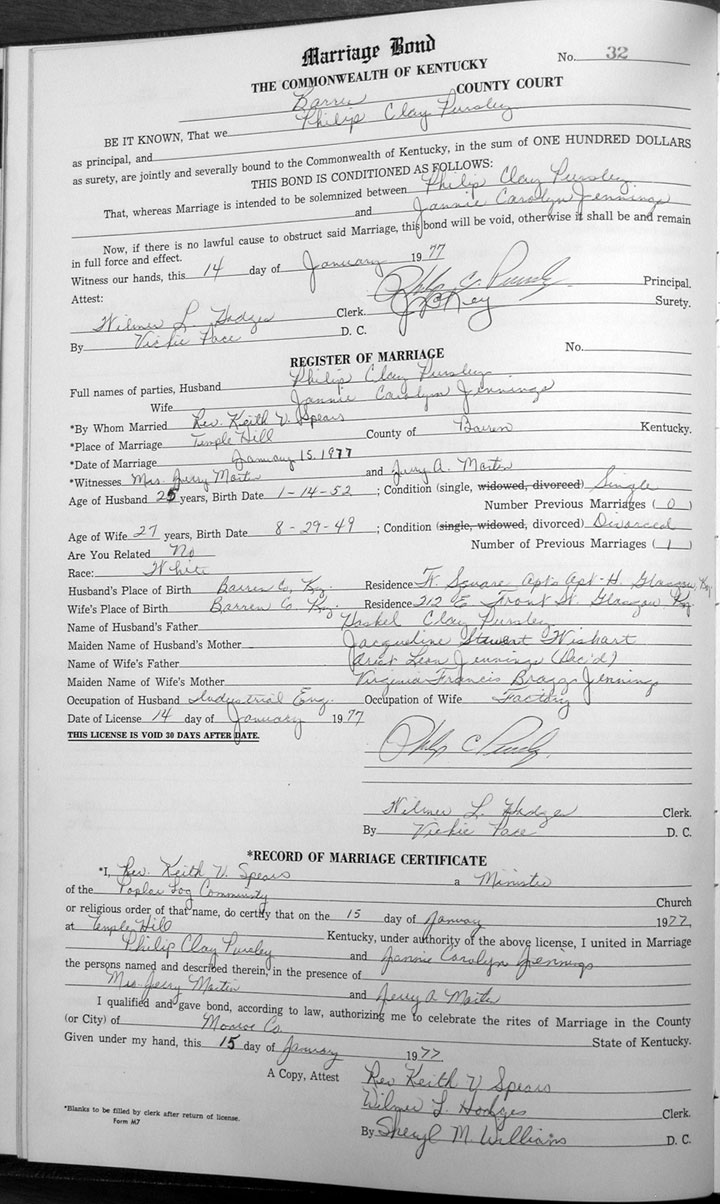 Marriage Bond
No. 32
THE COMMONWEALTH OF KENTUCKY
Barren COUNTY COURT
BE IT KNOWN, That we Philip Clay Pursley
as principal, and
as surety, are jointly and severally bound to the Commonwealth of Kentucky, in the sum of ONE HUNDRED DOLLARS
THIS BOND IS CONDITIONED AS FOLLOWS:
That, whereas Marriage is intended to be solemnized between Philip Clay Pursley
and Jannie Carolyn Jennings
Now, if there is no lawful cause to obstruct said Marriage, this bond will be void, otherwise it shall be and remain
in full force and effect.
Witness our hands, this 14 day of January 1977
Philip C. Pursley Principal.
Attest: J McKey Surety.
Wilmer L. Hodges Clerk.
By Vickie Pace D. C.
REGISTER OF MARRIAGE No.
Full names of parties, Husband Philip Clay Pursley
Wife Jannie Carolyn Jennings
*By Whom Married Rev. Keith V. Spears
*Place of Marriage Temple Hill County of Barren Kentucky.
*Date of Marriage January 15, 1977
*Witnesses Mrs. Jerry Martin and Jerry A. Martin
Age of Husband 25 years, Birth Date 1-14-52 ; Condition (single, widowed, divorced) Single
Number Previous Marriages (0)
Age of Wife 27 years, Birth Date 8-29-49 ; Condition (single, widowed, divorced) Divorced
Number of Previous Marriages (1)
Are You Related No
Race: White
Husband's Place of Birth Barren Co, Ky. Residence Square Apts Apt-H. Glasgow, Ky
Wife's Place of Birth Barren Co. Ky. Residence 212 E Front St. Glasgow, Ky
Name of Husband's Father Haskel Clay Pursley
Maiden Name of Husband's Mother Jacqueline Stewart Wishart
Name of Wife's Father Leon Jennings (Dec'd)
Maiden Name of Wife's Mother Virginia Francis Braggs Jennings
Occupation of Husband Industrial Eng. Occupation of Wife Factory
Date of License 14 day of January 1977
THIS LICENSE IS VOID 30 DAYS AFTER DATE.
Philip C Pursley
Wilmer L. Hodges Clerk.
By Vickie Pace D. C.
*RECORD OF MARRIAGE CERTIFICATE
*I, Rev. Keith V. Spears a Minister
of the Poplar Log Community Church
or religious order of that name, do certify that on the 15 day of January 1977,
at Temple Hill Kentucky, under authority of the above license, I united in Marriage
Philip Clay Pursley and Jannie Carolyn Jennings
the persons named and described therein, in the presence of
Mrs Jerry Martin and Jerry A Martin
I qualified and gave bond, according to law, authorizing me to celebrate the rites of Marriage in the County
(or City) of Monroe Co. State of Kentucky.
Given under my hand, this 15 day of January 1977
A Copy, Attest Rev Keith V Spears
Wilmer L. Hodges Clerk.
By Sheryl M. Williams D. C.
*Blanks to be filled by clerk after return of license.
Form M7